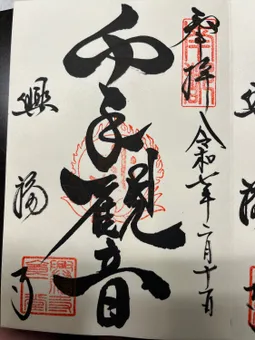 奉拝 令和七年二月十一日
千手観音
興福寺